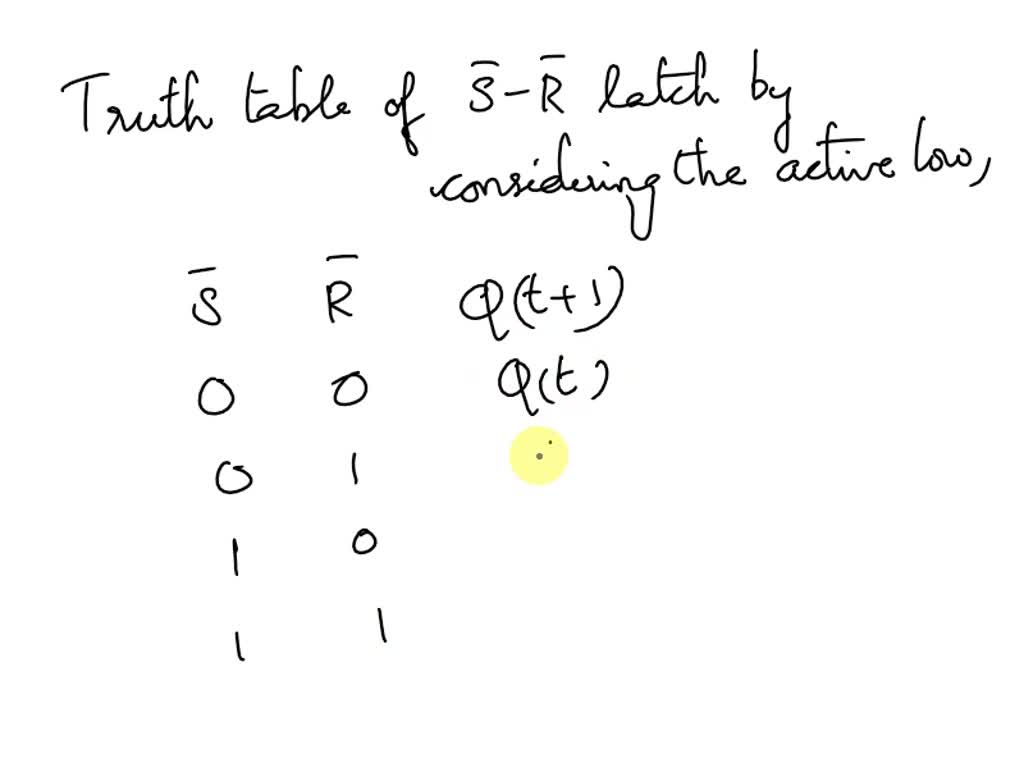 Truth table of S̅-R̅ latch by
considering the active low,
S̅ R̅ Q(t+1)
0 0 Q(t)
0 1
1 0
1 1